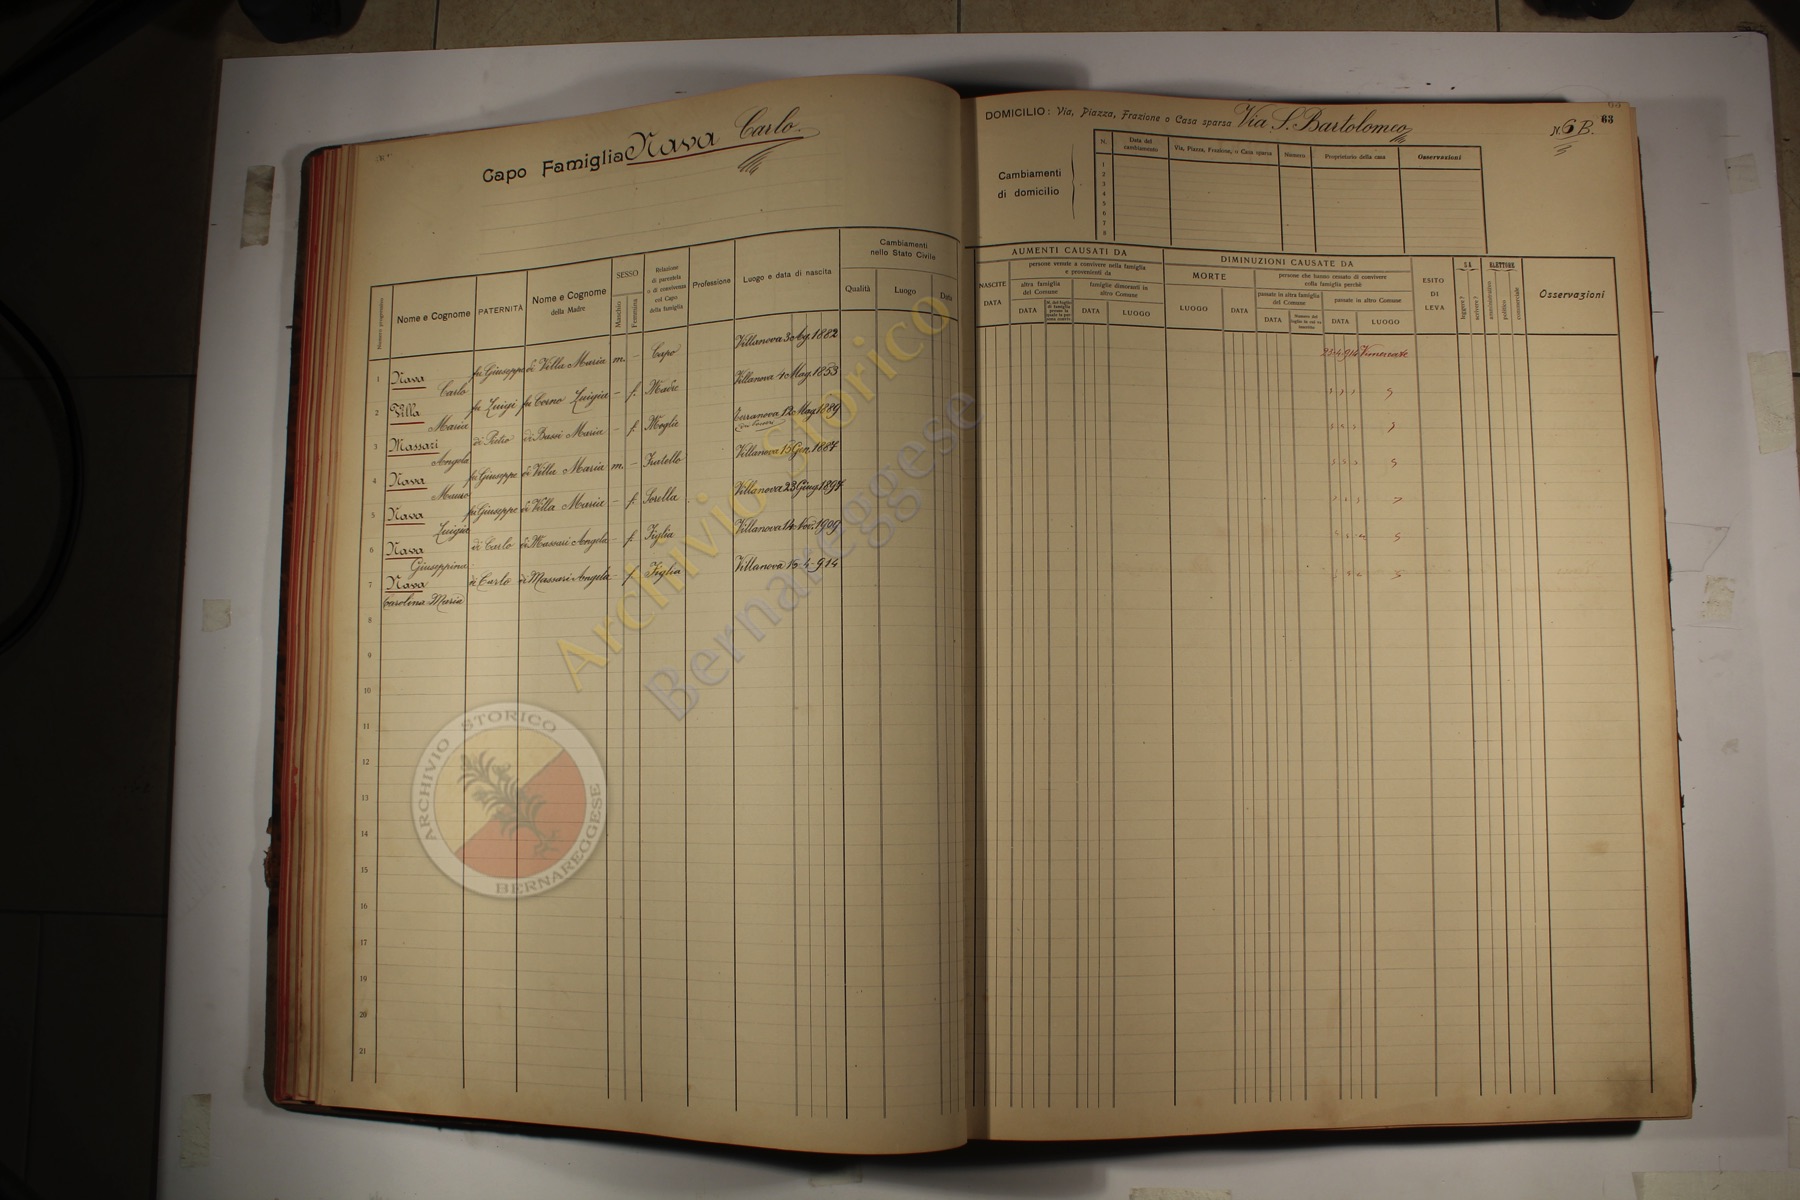 Capo Famiglia Nava Carlo
DOMICILIO: Via, Piazza, Frazione o Casa sparsa Via S. Bartolomeo N. 6 B. 63
Cambiamenti di domicilio
N. Data del cambiamento Via, Piazza, Frazione, o Casa sparsa Numero Proprietario della casa Osservazioni
1
2
3
4
5
6
7
8
Numero progressivo Nome e Cognome PATERNITÀ Nome e Cognome della Madre SESSO Maschio Femmina Relazione di parentela o di convivenza col Capo della famiglia Professione Luogo e data di nascita Cambiamenti nello Stato Civile Qualità Luogo Data
NASCITE DATA AUMENTI CAUSATI DA persone venute a convivere nella famiglia e provenienti da altra famiglia del Comune DATA famiglie dimoranti in altro Comune DATA LUOGO
DIMINUZIONI CAUSATE DA MORTE LUOGO DATA persone che hanno cessato di convivere colla famiglia perchè passate in altra famiglia del Comune DATA passate in altro Comune DATA LUOGO
ESITO DI LEVA SA leggere? scrivere? ELETTORE amministrativo politico commerciale Osservazioni
1 Nava Carlo fu Giuseppe di Villa Maria m. - Capo Villanova 30 Ag. 1882 23.4.914 Vimercate
2 Villa Maria fu Luigi fu Corno Luigia - f. Madre Villanova 4 Mag. 1853
3 Massari Angela di Pietro di Bassi Maria - f. Moglie Terranova 12 Mag 1889
4 Nava Mauro fu Giuseppe di Villa Maria m. - Fratello Villanova 15 Gen. 1887
5 Nava Luigia fu Giuseppe di Villa Maria - f. Sorella Villanova 23 Giug. 1897
6 Nava Giuseppina di Carlo di Massari Angela - f. Figlia Villanova 14 Nov. 1909
7 Nava Carolina Maria di Carlo di Massari Angela - f. Figlia Villanova 15-4-914
8
9
10
11
12
13
14
15
16
17
18
19
20
21
Archivio Storico
Bernareggese
ARCHIVIO STORICO
BERNAREGGESE